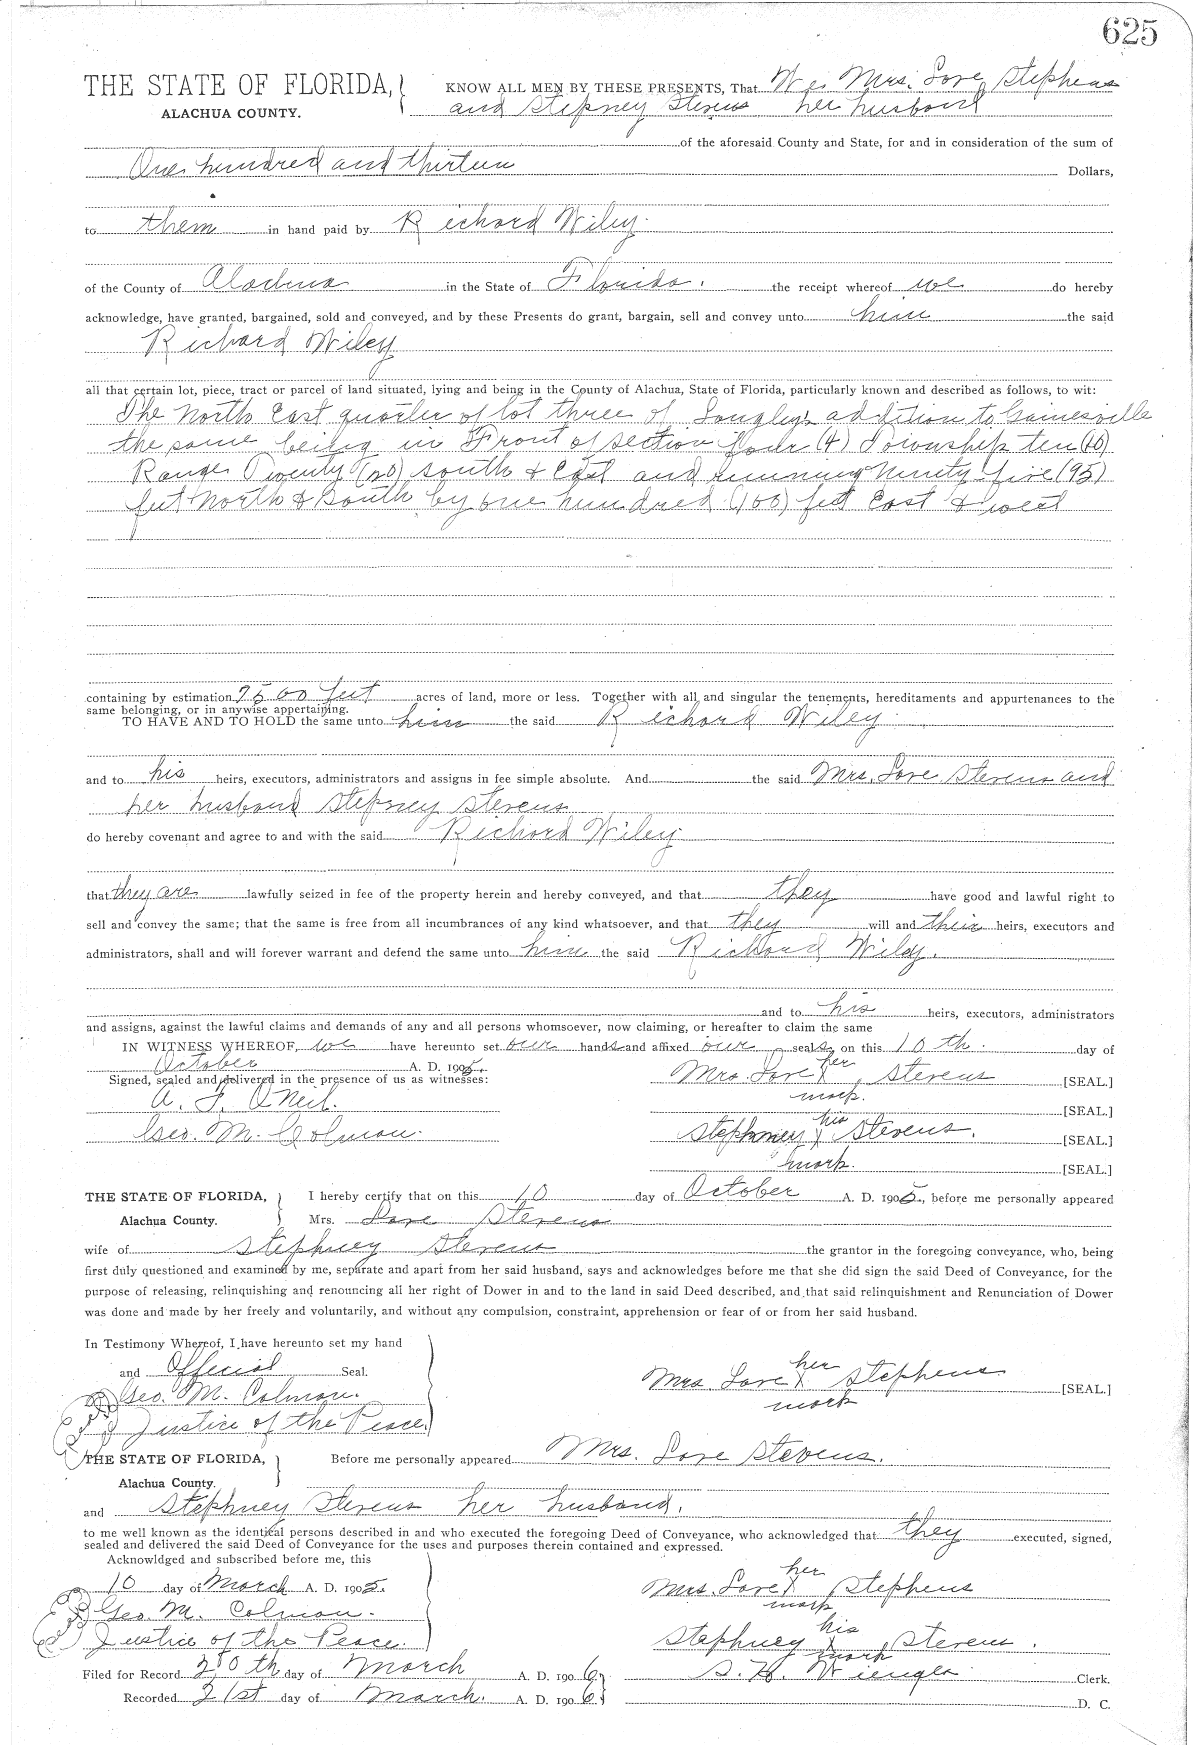 625
THE STATE OF FLORIDA, KNOW ALL MEN BY THESE PRESENTS, That We Mrs. Love Stephens
ALACHUA COUNTY. and Stepney Stevens her husband
of the aforesaid County and State, for and in consideration of the sum of
One hundred and thirteen Dollars,
to them in hand paid by Richard Wiley.
of the County of Alachua in the State of Florida. the receipt whereof we do hereby
acknowledge, have granted, bargained, sold and conveyed, and by these Presents do grant, bargain, sell and convey unto him the said
Richard Wiley
all that certain lot, piece, tract or parcel of land situated, lying and being in the County of Alachua, State of Florida, particularly known and described as follows, to wit:
The North East quarter of lot three of addition to Gainesville
the same being in Front of section four (4) Township ten (10)
Range Twenty (20) South & East and running Ninety-five (95)
feet North & South by one hundred (100) feet East & west
containing by estimation 9500 feet acres of land, more or less. Together with all and singular the tenements, hereditaments and appurtenances to the
same belonging, or in anywise appertaining.
TO HAVE AND TO HOLD the same unto him the said Richard Wiley.
and to his heirs, executors, administrators and assigns in fee simple absolute. And the said Mrs. Love Stevens and
her husband Stepney Stevens
do hereby covenant and agree to and with the said Richard Wiley.
that they are lawfully seized in fee of the property herein and hereby conveyed, and that they have good and lawful right to
sell and convey the same; that the same is free from all incumbrances of any kind whatsoever, and that they will and their heirs, executors and
administrators, shall and will forever warrant and defend the same unto him the said Richard Wiley.
and to his heirs, executors, administrators
and assigns, against the lawful claims and demands of any and all persons whomsoever, now claiming, or hereafter to claim the same
IN WITNESS WHEREOF, we have hereunto set our hands and affixed our seals on this 10th. day of
October A. D. 1905. Mrs Love her X Stevens [SEAL.]
Signed, sealed and delivered in the presence of us as witnesses: mark.
A. F. O'Neil. [SEAL.]
Geo. M. Colmon. Stephney his X Stevens. [SEAL.]
mark. [SEAL.]
THE STATE OF FLORIDA, I hereby certify that on this 10 day of October A. D. 1905., before me personally appeared
Alachua County. Mrs. Love Stevens
wife of Stephney Stevens the grantor in the foregoing conveyance, who, being
first duly questioned and examined by me, separate and apart from her said husband, says and acknowledges before me that she did sign the said Deed of Conveyance, for the
purpose of releasing, relinquishing and renouncing all her right of Dower in and to the land in said Deed described, and that said relinquishment and Renunciation of Dower
was done and made by her freely and voluntarily, and without any compulsion, constraint, apprehension or fear of or from her said husband.
In Testimony Whereof, I have hereunto set my hand
and Official Seal. Mrs. Love her X Stephens [SEAL.]
Geo. M. Colmon. mark
Justice of the Peace.
THE STATE OF FLORIDA, Before me personally appeared Mrs. Love Stevens.
Alachua County.
and Stephney Stevens her husband.
to me well known as the identical persons described in and who executed the foregoing Deed of Conveyance, who acknowledged that they executed, signed,
sealed and delivered the said Deed of Conveyance for the uses and purposes therein contained and expressed.
Acknowldged and subscribed before me, this
10 day of March A. D. 1905. Mrs. Love her X Stephens
Geo M. Colmon. mark
Justice of the Peace. Stephney his X mark Stevens.
Filed for Record 20th day of March A. D. 1906. S. H. Clerk.
Recorded 21st day of March. A. D. 1906. D. C.